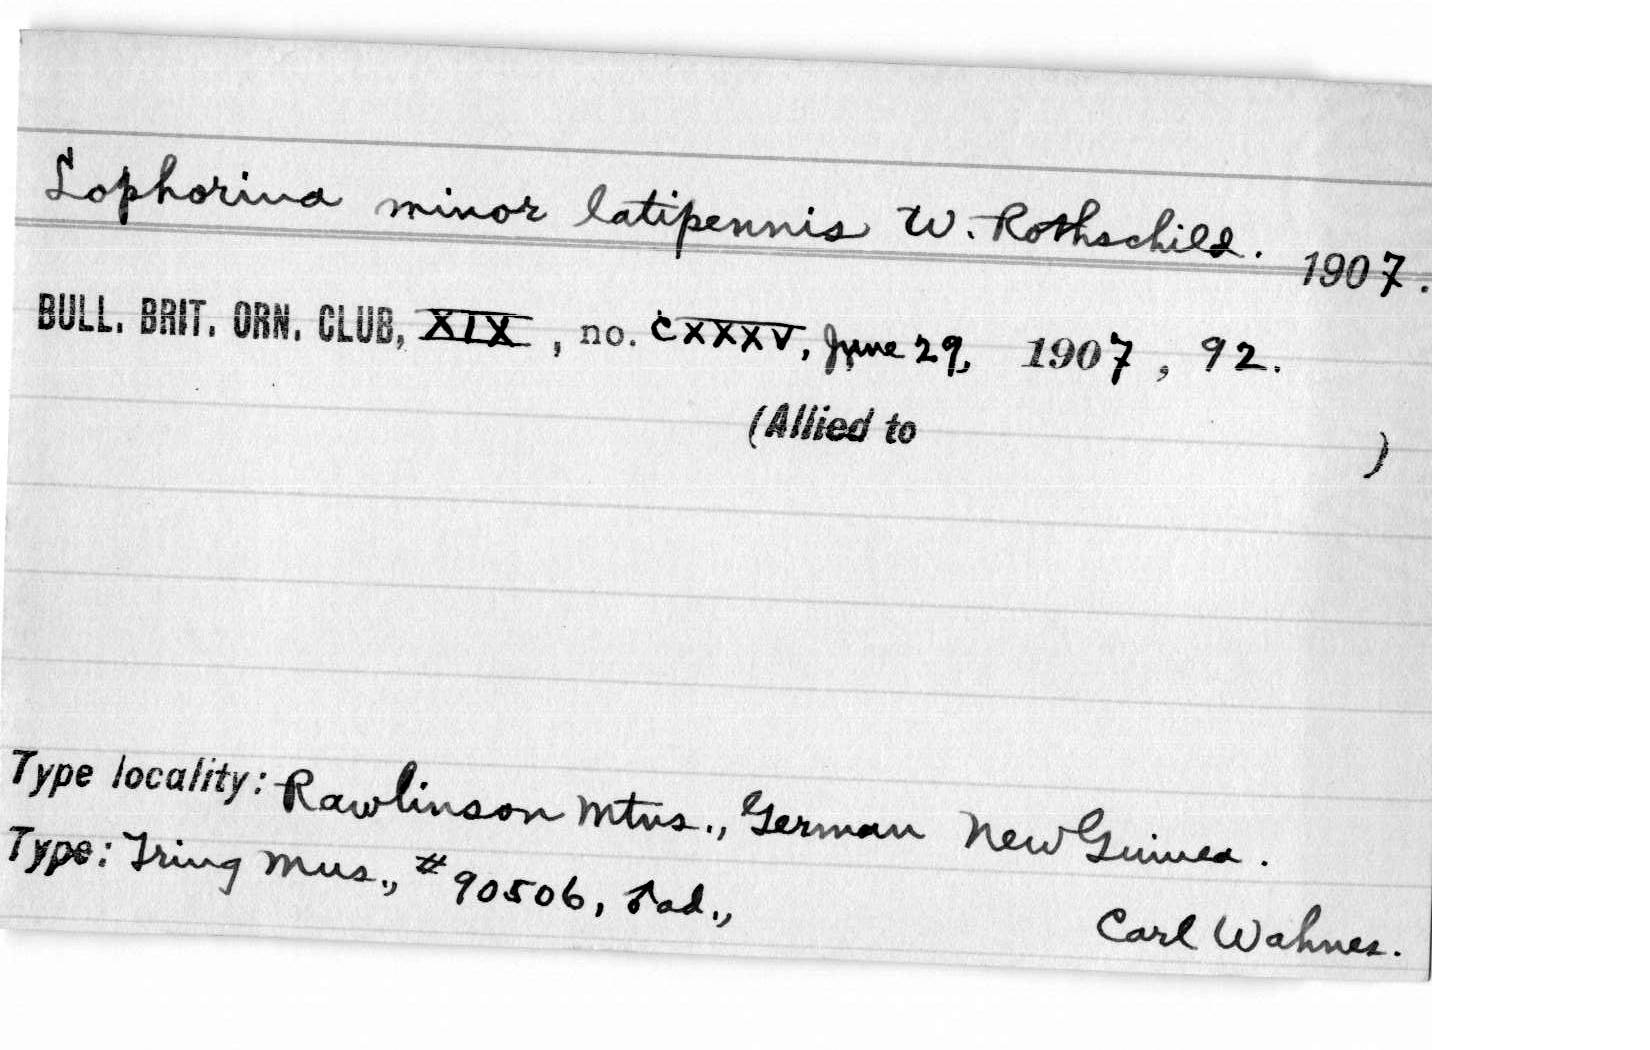 Lophorina minor latipennis W. Rothschild. 1907.
BULL. BRIT. ORN. CLUB, XIX, no. CXXXV, June 29, 1907, 92.
(Allied to )
Type locality: Rawlinson Mtns., German New Guinea.
Type: Tring Mus., #90506, ♂ad., Carl Wahnes.